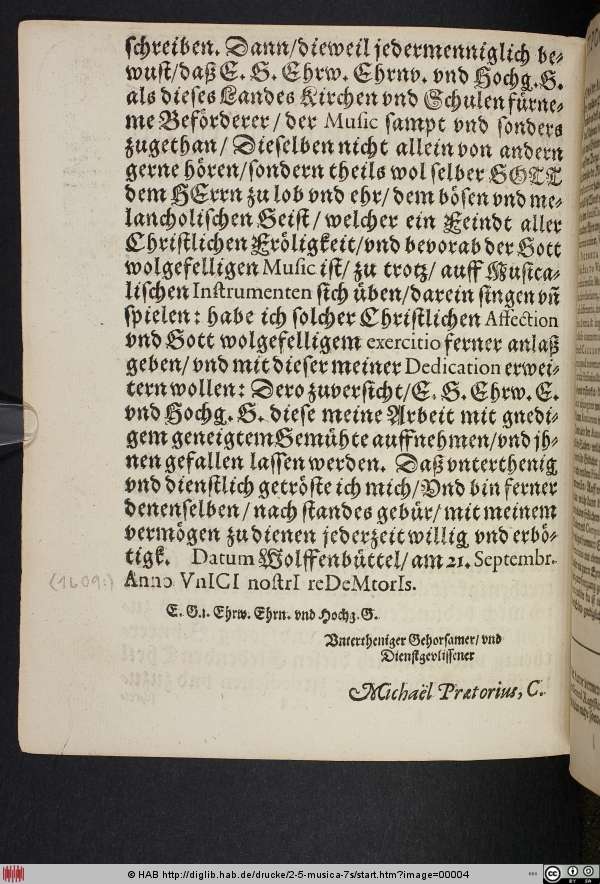 schreiben. Dann/dieweil jedermenniglich be-
wust/daß E. G. Ehrw. Ehrnv. vnd Hochg. G.
als dieses Landes Kirchen vnd Schulen fürne-
me Beförderer/ der Music sampt vnd sonders
zugethan/ Dieselben nicht allein von andern
gerne hören/sondern theils wol selber GOTT
dem HErrn zu lob vnd ehr/ dem bösen vnd me-
lancholischen Geist/ welcher ein Feindt aller
Christlichen Fröligkeit/vnd bevorab der Gott
wolgefelligen Music ist/ zu trotz/ auff Musica-
lischen Instrumenten sich üben/darein singen vn̄
spielen: habe ich solcher Christlichen Affection
vnd Gott wolgefelligem exercitio ferner anlaß
geben/ vnd mit dieser meiner Dedication erwei-
tern wollen: Dero zuversicht/E. G. Ehrw. E.
vnd Hochg. G. diese meine Arbeit mit gnedi-
gem geneigtem Gemühte auffnehmen/vnd jh-
nen gefallen lassen werden. Daß vnterthenig
vnd dienstlich getröste ich mich/Vnd bin ferner
denenselben/ nach standes gebür/ mit meinem
vermögen zu dienen jederzeit willig vnd erbö-
tigk. Datum Wolffenbüttel/ am 21. Septembr.
(1609:) Anno VnICI nostrI reDeMtorIs.
E. G. 1. Ehrw. Ehrn. vnd Hochg. G.
Vntertheniger Gehorsamer/ vnd
Dienstgevlissener
Michaël Prætorius, C.
© HAB http://diglib.hab.de/drucke/2-5-musica-7s/start.htm?image=00004
cc BY SA